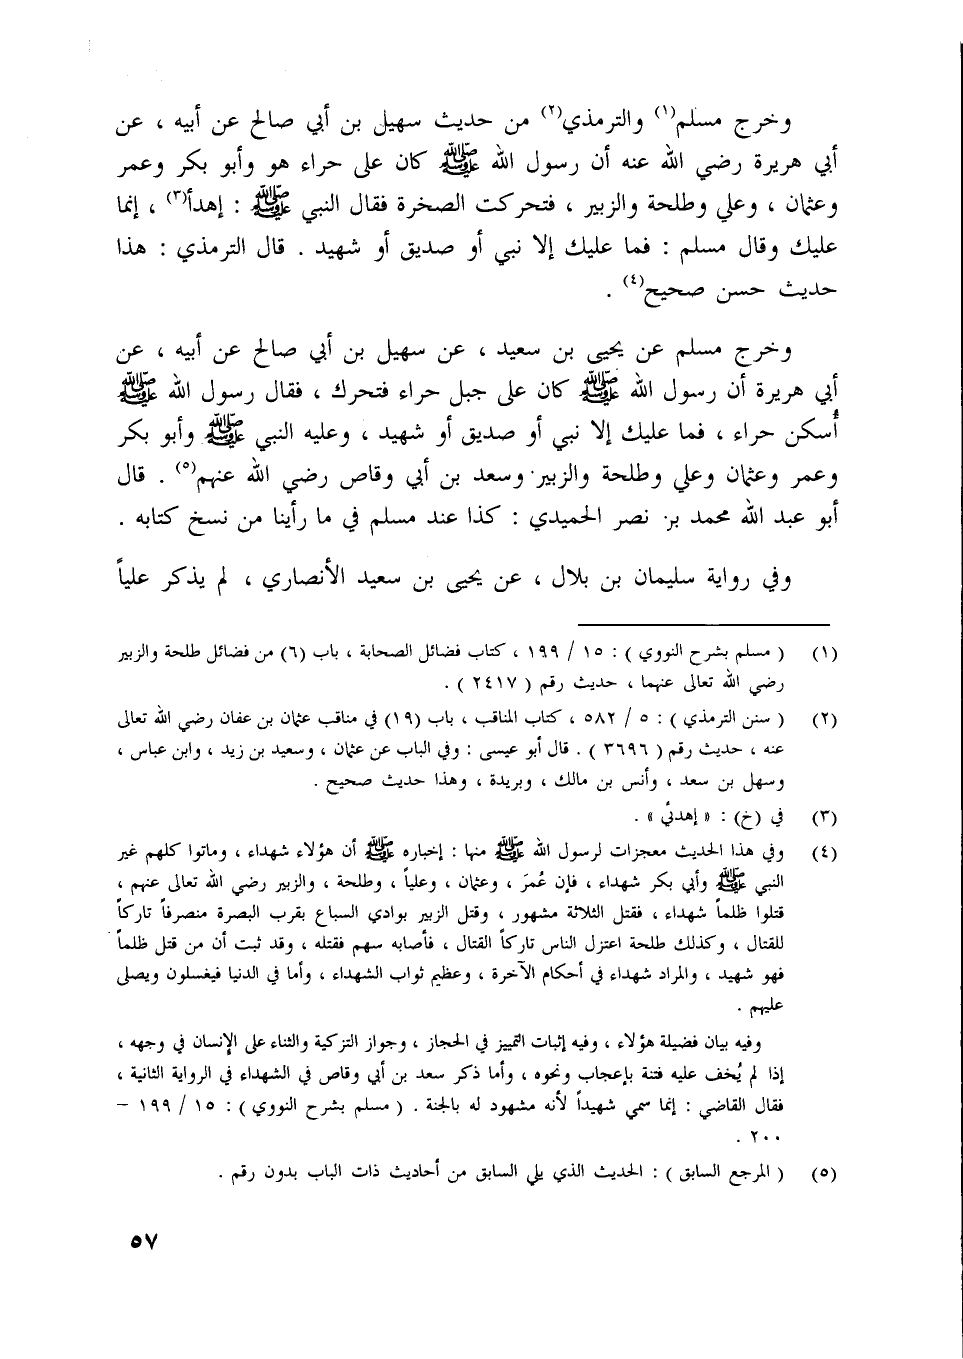 وخرج مسلم(١) والترمذي(٢) من حديث سهيل بن أبي صالح عن أبيه ، عن
أبي هريرة رضي الله عنه أن رسول الله ﷺ كان على حراء هو وأبو بكر وعمر
وعثمان ، وعلي وطلحة والزبير ، فتحركت الصخرة فقال النبي ﷺ : إهدأ(٣) ، إنما
عليك وقال مسلم : فما عليك إلا نبي أو صديق أو شهيد . قال الترمذي : هذا
حديث حسن صحيح(٤) .
وخرج مسلم عن يحيى بن سعيد ، عن سهيل بن أبي صالح عن أبيه ، عن
أبي هريرة أن رسول الله ﷺ كان على جبل حراء فتحرك ، فقال رسول الله ﷺ
أُسكن حراء ، فما عليك إلا نبي أو صديق أو شهيد ، وعليه النبي ﷺ وأبو بكر
وعمر وعثمان وعلي وطلحة والزبير وسعد بن أبي وقاص رضي الله عنهم(٥) . قال
أبو عبد الله محمد بن نصر الحميدي : كذا عند مسلم في ما رأينا من نسخ كتابه .
وفي رواية سليمان بن بلال ، عن يحيى بن سعيد الأنصاري ، لم يذكر علياً
(١) ( مسلم بشرح النووي ) : ١٥ / ١٩٩ ، كتاب فضائل الصحابة ، باب (٦) من فضائل طلحة والزبير
رضي الله تعالى عنهما ، حديث رقم ( ٢٤١٧ ) .
(٢) ( سنن الترمذي ) : ٥ / ٥٨٢ ، كتاب المناقب ، باب (١٩) في مناقب عثمان بن عفان رضي الله تعالى
عنه ، حديث رقم ( ٣٦٩٦ ) . قال أبو عيسى : وفي الباب عن عثمان ، وسعيد بن زيد ، وابن عباس ،
وسهل بن سعد ، وأنس بن مالك ، وبريدة ، وهذا حديث صحيح .
(٣) في (خ) : « إهدئي » .
(٤) وفي هذا الحديث معجزات لرسول الله ﷺ منها : إخباره ﷺ أن هؤلاء شهداء ، وماتوا كلهم غير
النبي ﷺ وأبي بكر شهداء ، فإن عُمَرَ ، وعثمان ، وعلياً ، وطلحة ، والزبير رضي الله تعالى عنهم ،
قتلوا ظلماً شهداء ، فقتل الثلاثة مشهور ، وقتل الزبير بوادي السباع بقرب البصرة منصرفاً تاركاً
للقتال ، وكذلك طلحة اعتزل الناس تاركاً القتال ، فأصابه سهم فقتله ، وقد ثبت أن من قتل ظلماً
فهو شهيد ، والمراد شهداء في أحكام الآخرة ، وعظيم ثواب الشهداء ، وأما في الدنيا فيغسلون ويصلى
عليهم .
وفيه بيان فضيلة هؤلاء ، وفيه إثبات التمييز في الحجاز ، وجواز التزكية والثناء على الإنسان في وجهه ،
إذا لم يُخف عليه فتنة بإعجاب ونحوه ، وأما ذكر سعد بن أبي وقاص في الشهداء في الرواية الثانية ،
فقال القاضي : إنما سمي شهيداً لأنه مشهود له بالجنة . ( مسلم بشرح النووي ) : ١٥ / ١٩٩ –
٢٠٠ .
(٥) ( المرجع السابق ) : الحديث الذي يلي السابق من أحاديث ذات الباب بدون رقم .
٥٧